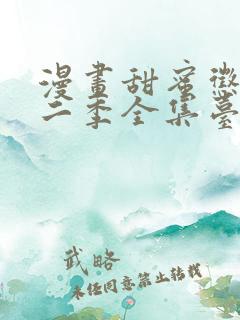 漫畫甜蜜懲
二季全集臺
武略
未經同意禁止转载